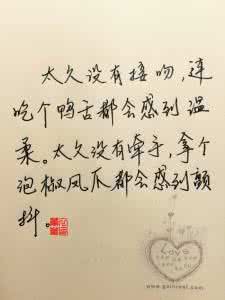 太久没有接吻，连
吃个鸭舌都会感到温
柔。太久没有牵手，拿个
泡椒凤爪都会感到颤
抖。
Love
www.gainreel.com